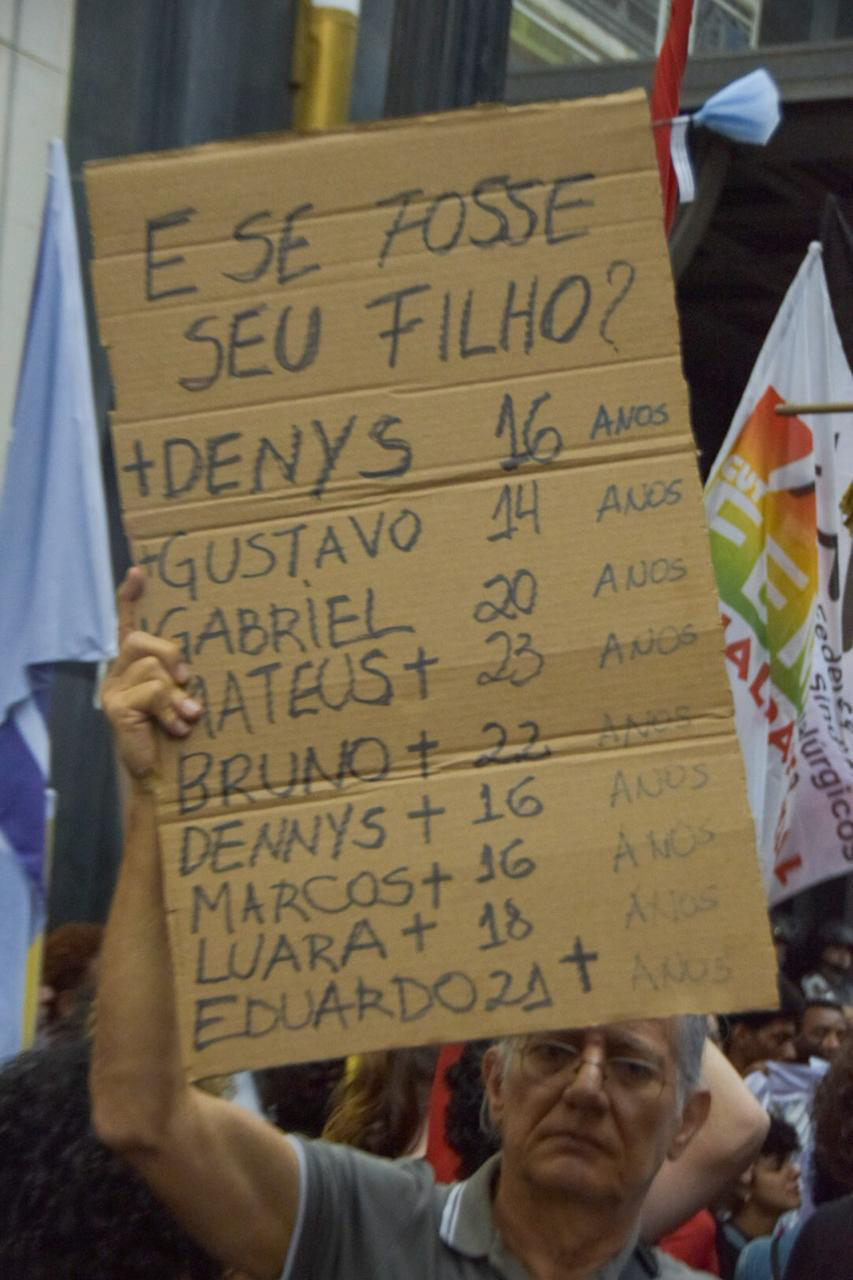 E SE FOSSE
SEU FILHO?
+DENYS 16 ANOS
+GUSTAVO 14 ANOS
+GABRIEL 20 ANOS
MATEUS+ 23 ANOS
BRUNO+ 22 ANOS
DENNYS+ 16 ANOS
MARCOS+ 16 ANOS
LUARA+ 18 ANOS
EDUARDO 21+ ANOS
CUT